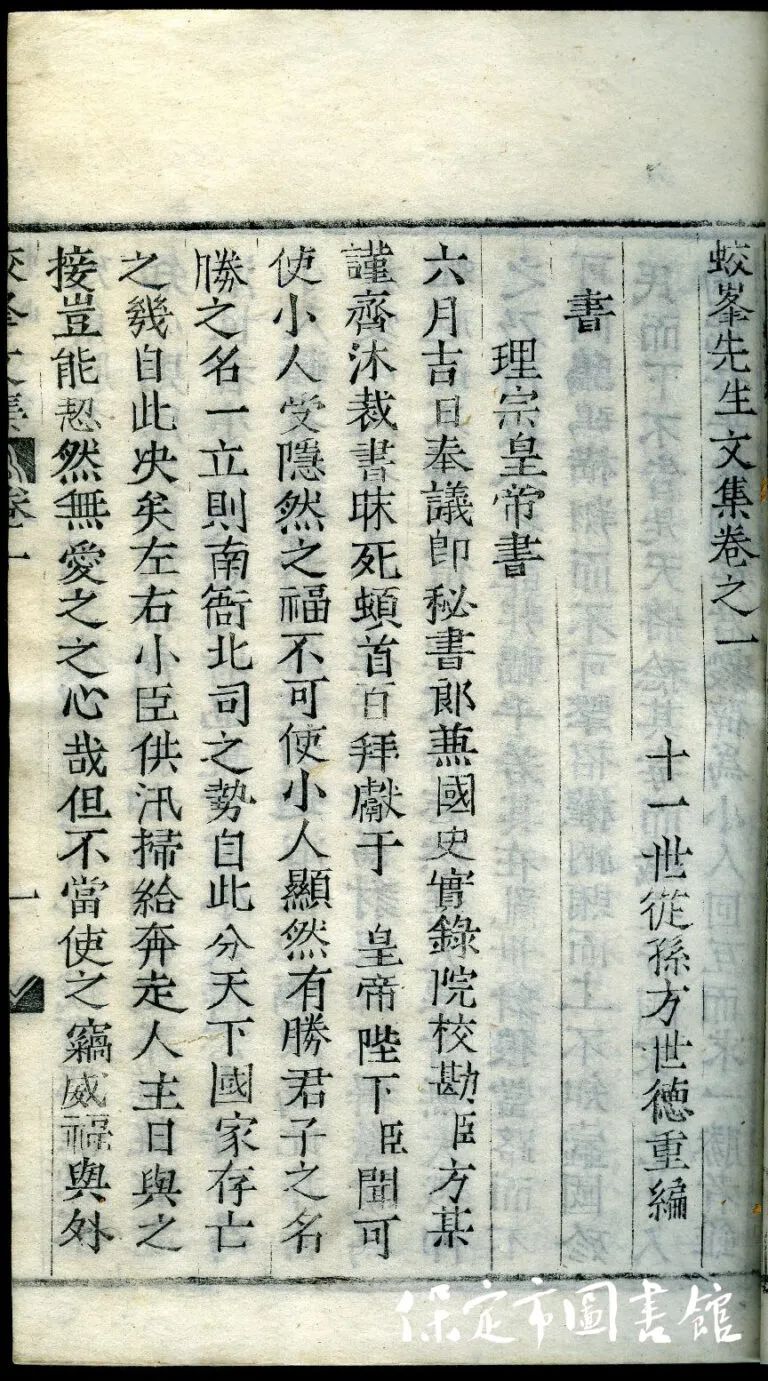 蛟峯先生文集卷之一
十一世從孫方世德重編
書
理宗皇帝書
六月吉日奉議郎秘書郎兼國史實錄院校勘臣方某
謹齊沐裁書昧死頓首百拜獻于 皇帝陛下臣聞可
使小人受隱然之福不可使小人顯然有勝君子之名
勝之名一立則南衙北司之勢自此分天下國家存亡
之幾自此決矣左右小臣供汛掃給奔走人主日與之
接豈能恝然無愛之之心哉但不當使之竊威福與外
蛟峯文集 卷一 一
保定市圖書館